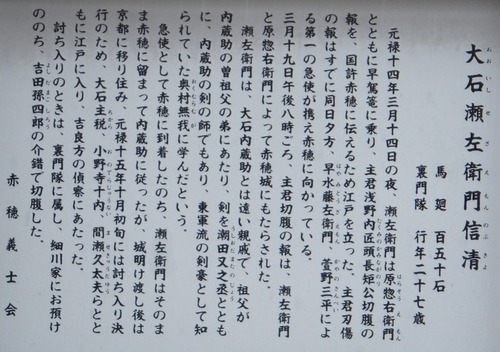 大石瀬左衛門信清
馬廻 百五十石
裏門隊 行年二十七歳
元禄十四年三月十四日の夜、瀬左衛門は原惣右衛門
とともに早駕篭に乗り、主君浅野内匠頭長矩公切腹の
報を、国許赤穂に伝えるため江戸を立った。主君刃傷
の報はすでに同日夕方、早水藤左衛門、萱野三平によ
る第一の急使が携え赤穂に向かっている。
三月十九日午後八時ごろ、主君切腹の報は、瀬左衛門
と原惣右衛門によって赤穂城にもたらされた。
瀬左衛門は、大石内蔵助とは遠い親戚で、祖父が
内蔵助の曽祖父の弟にあたり、剣を潮田又之丞ととも
に、内蔵助の剣の師でもあり、東軍流の剣豪として知
られていた奥村無我に学んだという。
急使として赤穂に到着したのち、瀬左衛門はそのま
ま赤穂に留まって内蔵助に従ったが、城明け渡し後は
京都に移り住み、元禄十五年十月初旬には討ち入り決
行のため、大石主税、小野寺十内、間瀬久太夫らとと
もに江戸に入り、吉良方の偵察にあたった。
討ち入りのときは、裏門隊に属し、細川家にお預け
ののち、吉田孫四郎の介錯で切腹した。
赤穂義士会